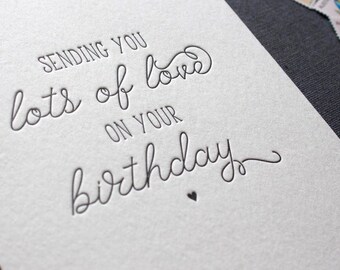 SENDING YOU
lots of love
ON YOUR
birthday